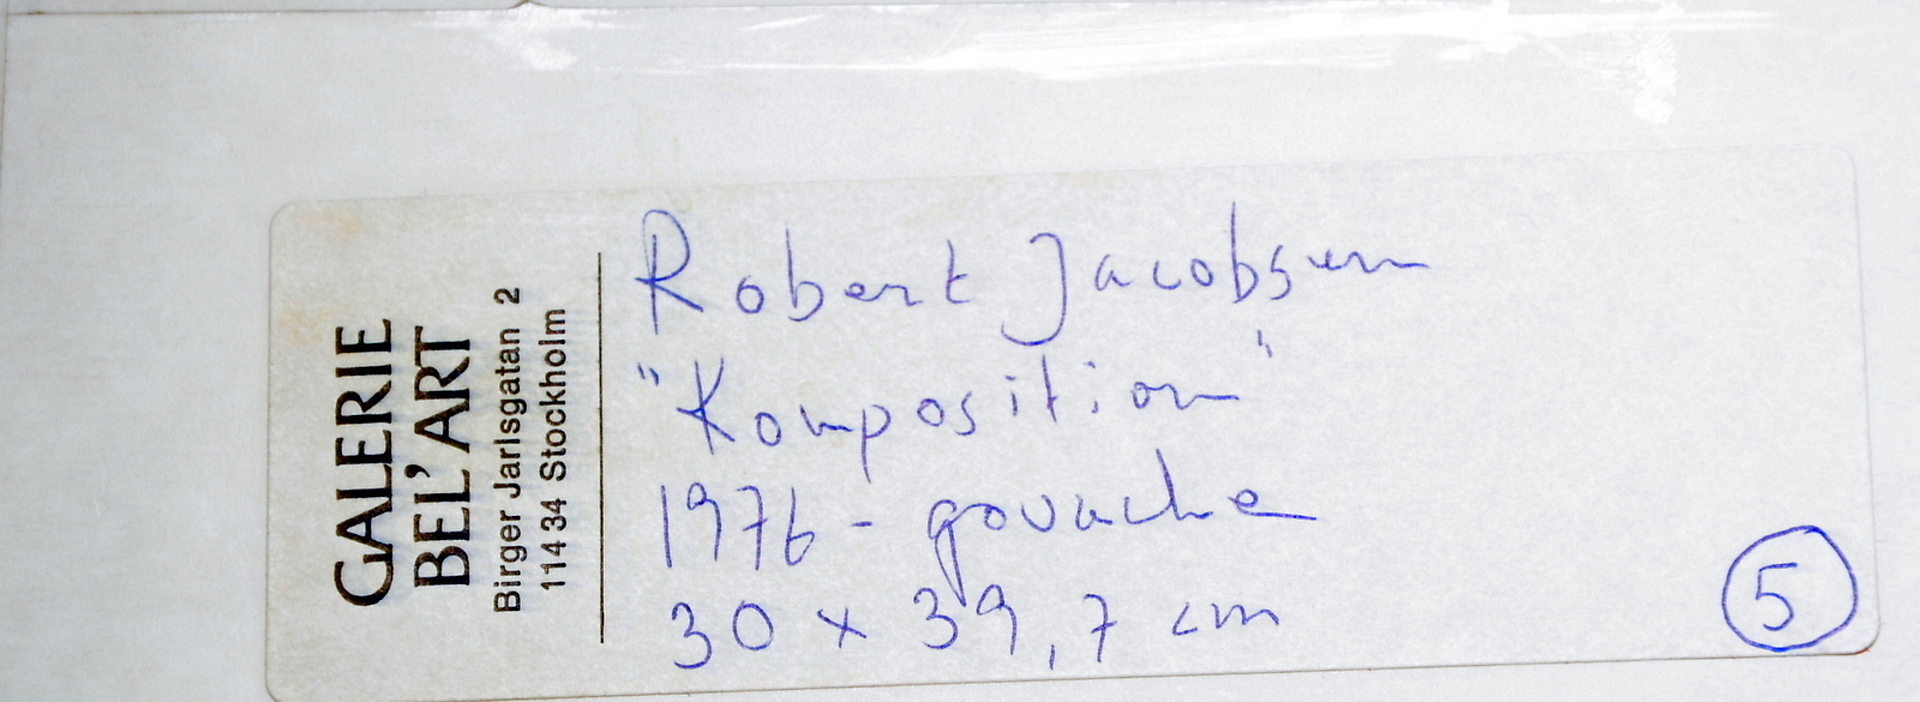 GALERIE
BEL'ART
Birger Jarlsgatan 2
114 34 Stockholm
Robert Jacobsen
"Komposition"
1976 - gouache
30 x 39,7 cm
5